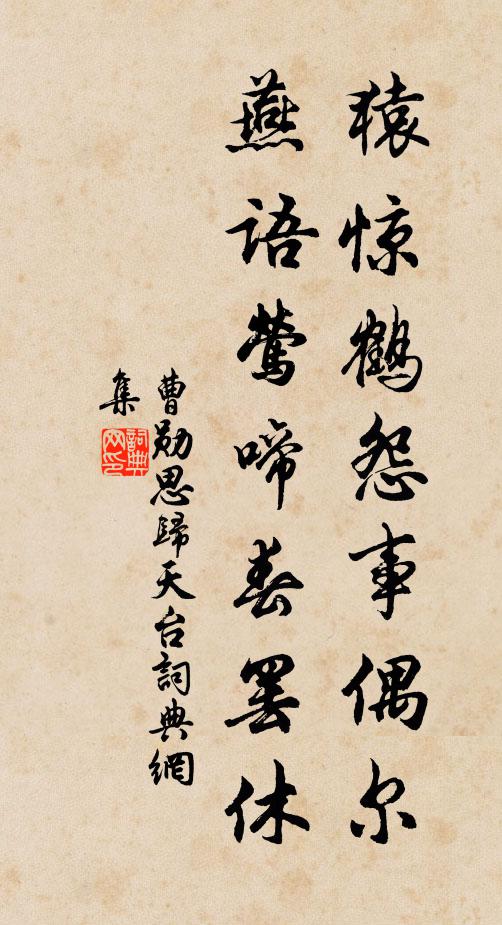 猿惊鹤怨事偶尔
燕语莺啼春罢休
曹勋思歸天台詞典網
集
詞典网印